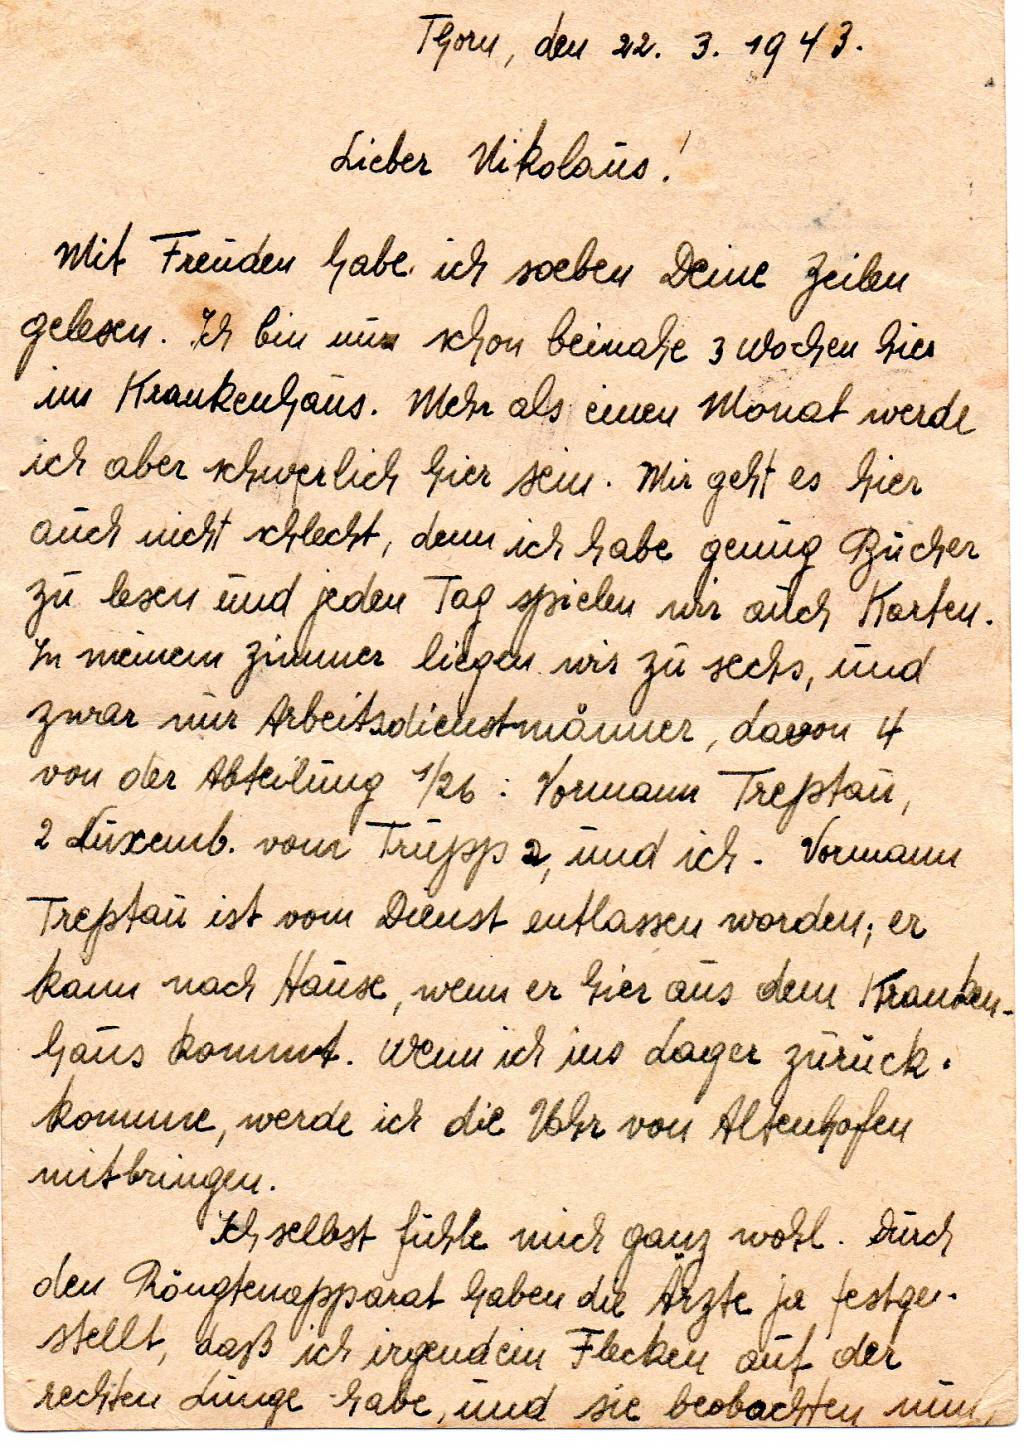 Thorn, den 22. 3. 1943.
Lieber Nikolaus!
Mit Freuden habe ich soeben Deine Zeilen
gelesen. Ich bin nun schon beinahe 3 Wochen hier
im Krankenhaus. Mehr als einen Monat werde
ich aber schwerlich hier sein. Mir geht es hier
auch nicht schlecht, denn ich habe genug Bücher
zu lesen und jeden Tag spielen wir auch Karten.
In meinem Zimmer liegen wir zu sechs, und
zwar nur Arbeitsdienstmänner, davon 4
von der Abteilung 1/26 : Vormann Treptau,
2 Luxemb. vom Trupp 2, und ich. Vormann
Treptau ist vom Dienst entlassen worden; er
kann nach Hause, wenn er hier aus dem Kranken-
haus kommt. Wenn ich ins Lager zurück-
komme, werde ich die Uhr von Altenhofen
mitbringen.
Ich selbst fühle mich ganz wohl. Durch
den Röngtenapparat haben die Ärzte ja festge-
stellt, daß ich irgendein Flecken auf der
rechten Lunge habe, und sie beobachten nun,